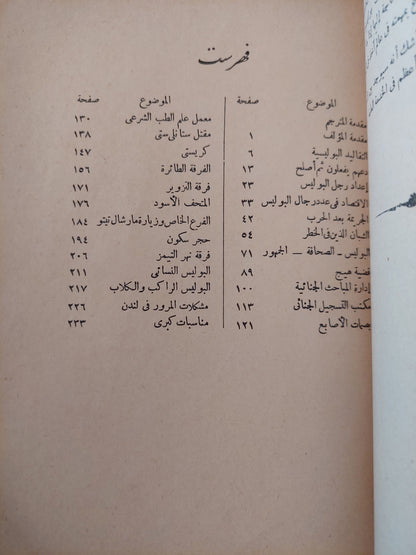 فهرست
الموضوع صفحة
مقدمة المترجم
مقدمة المؤلف ١
التقاليد البوليسية ٦
دعهم يفعلون ثم أصلح ١٣
إعداد رجل البوليس ٢٣
الاقتصاد فى عدد رجال البوليس ٣٣
الجريمة بعد الحرب ٤٢
الشبان الذين فى الخطر ٥٤
البوليس - الصحافة - الجمهور ٧١
قضية هيج ٨٩
إدارة المباحث الجنائية ١٠٠
مكتب التسجيل الجنائى ١١٣
بصمات الأصابع ١٢١
الموضوع صفحة
معمل علم الطب الشرعى ١٣٠
مقتل ستانلى ستى ١٣٨
كريستى ١٤٧
الفرقة الطائرة ١٥٦
فرقة التزوير ١٧١
المتحف الأسود ١٧٦
الفرع الخاص وزيارة مارشال تيتو ١٨٤
حجر سكون ١٩٤
فرقة نهر التيمز ٢٠٦
البوليس النسائى ٢١١
البوليس الراكب والكلاب ٢١٧
مشكلات المرور فى لندن ٢٢٦
مناسبات كبرى ٢٣٣